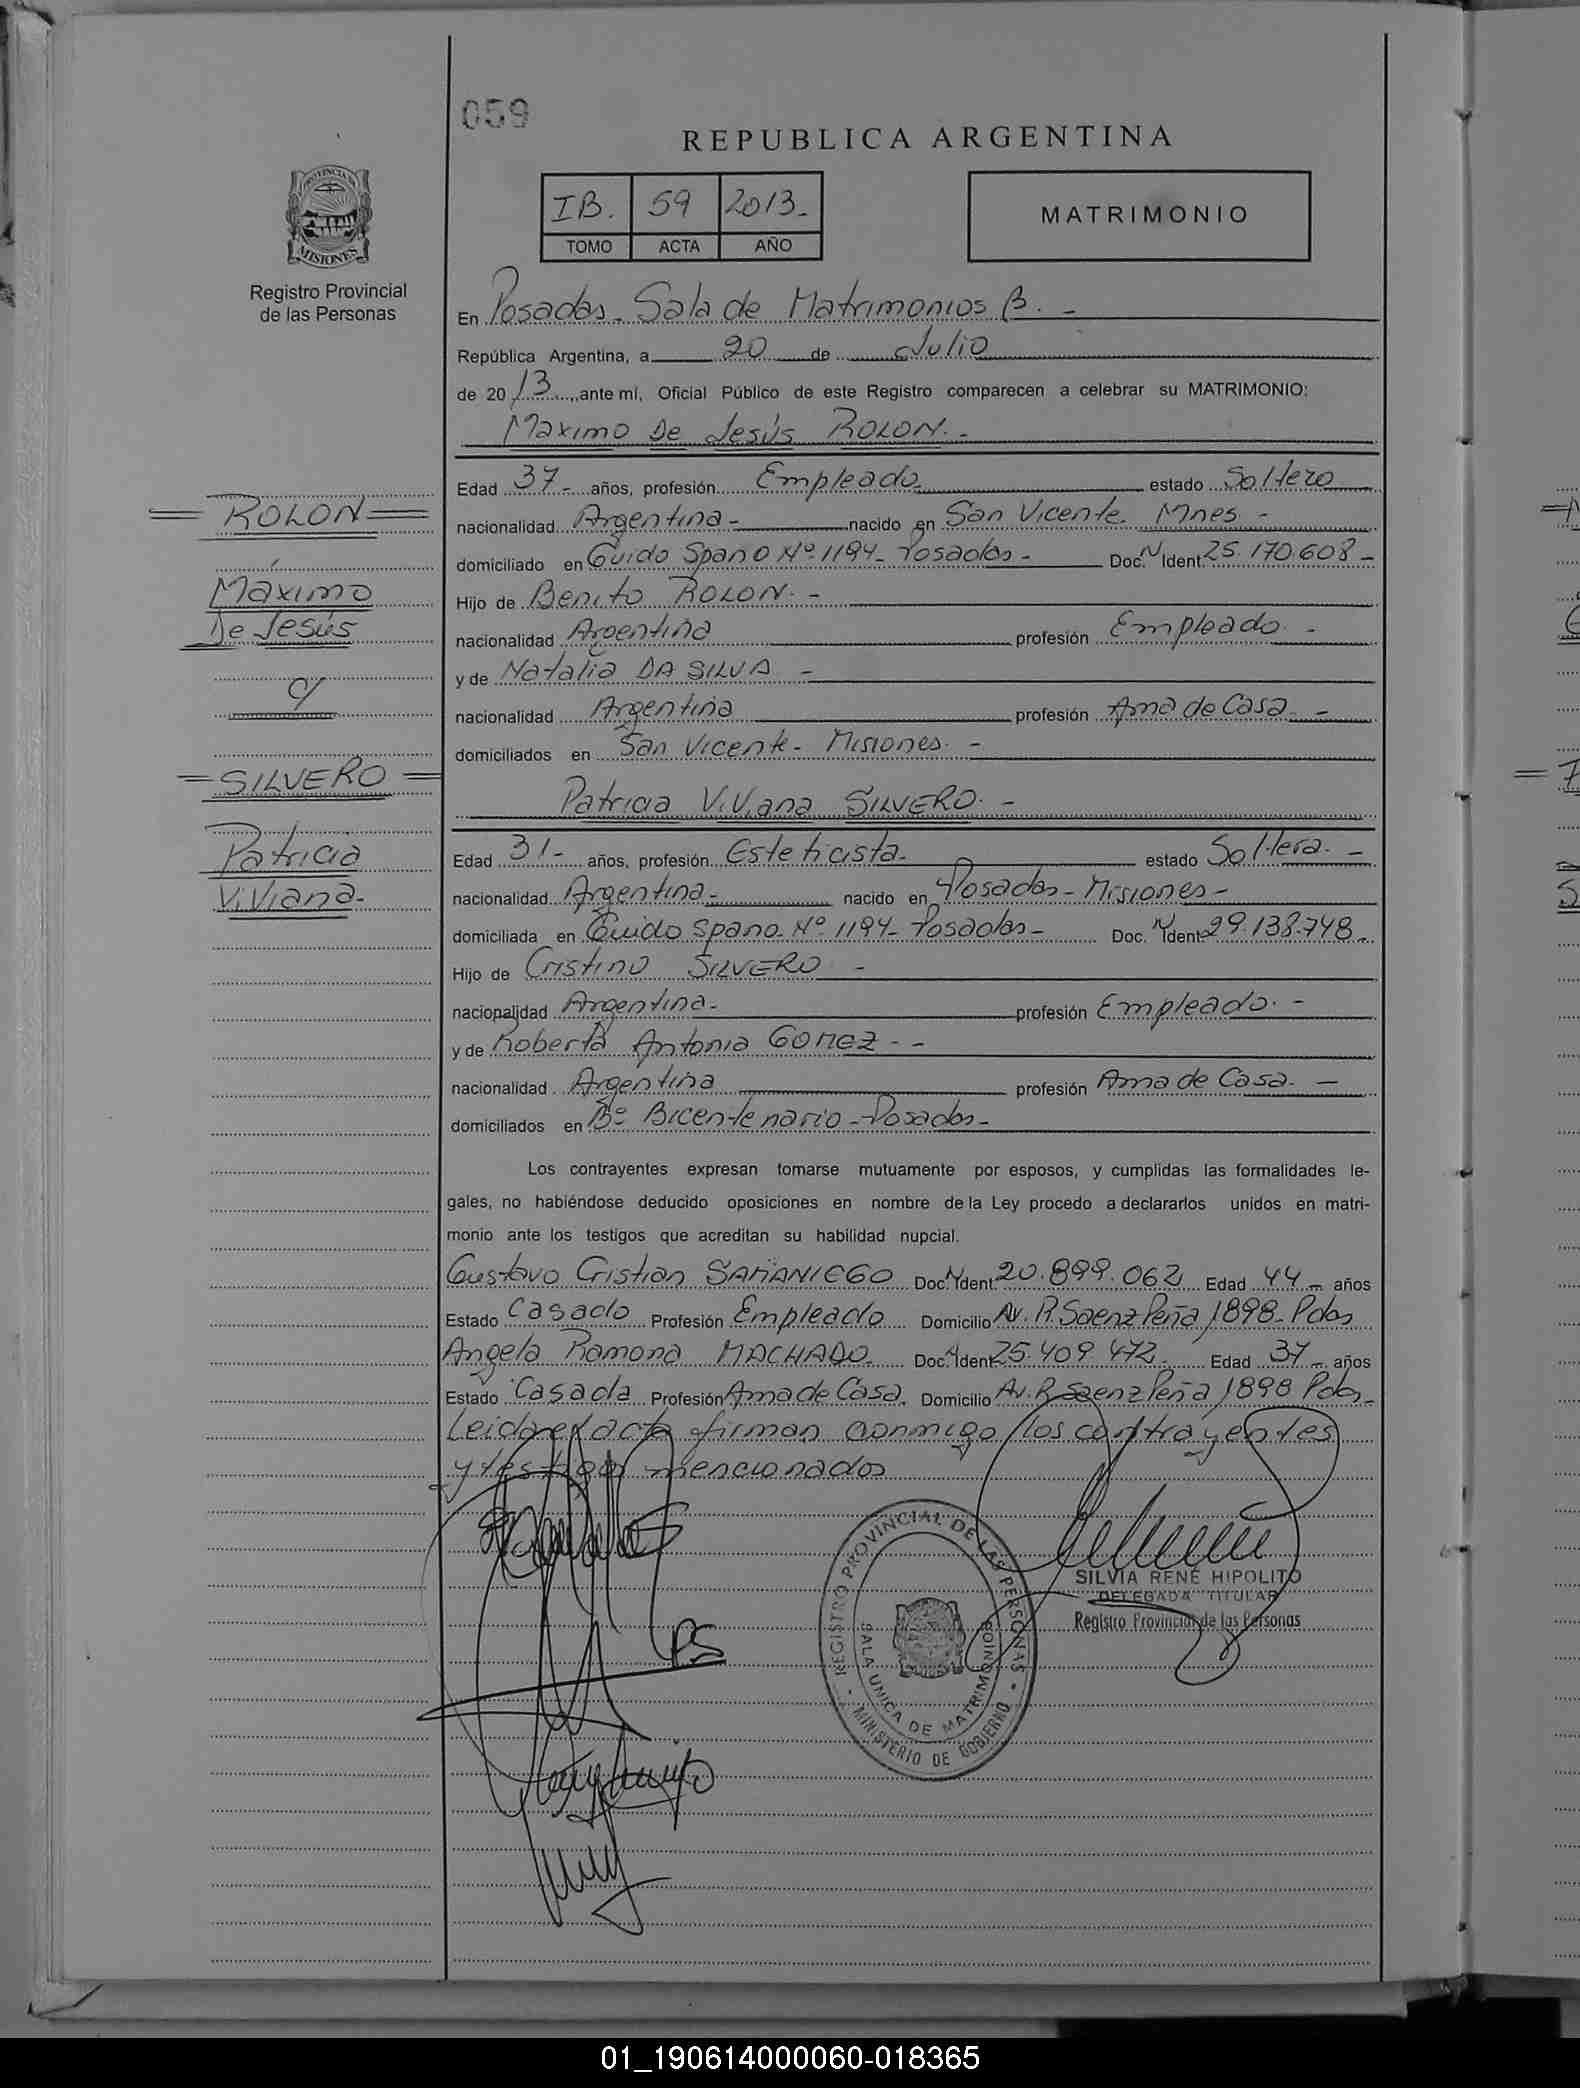 059
REPUBLICA ARGENTINA
PROVINCIA DE
MISIONES
Registro Provincial
de las Personas
IB. 59 2013.-
TOMO ACTA AÑO
MATRIMONIO
En Posadas. Sala de Matrimonios B. -
República Argentina, a 20 de Julio
de 2013, ante mí, Oficial Público de este Registro comparecen a celebrar su MATRIMONIO:
Maximo De Jesús ROLON.-
Edad 37- años, profesión Empleado estado Soltero
= ROLON =
nacionalidad Argentina - nacido en San Vicente. Mnes -
domiciliado en Guido Spano Nº 1194- Posadas - Doc. N Ident. 25.170.608 -
Máximo
Hijo de Benito ROLON. -
De Jesús
nacionalidad Argentina profesión Empleado. -
y de Natalia DA SILVA -
c/
nacionalidad Argentina profesión Ama de Casa. -
domiciliados en San Vicente- Misiones. -
= SILVERO =
Patricia Viviana SILVERO. -
Patricia
Edad 31- años, profesión Esteticista. estado Soltera. -
Viviana.-
nacionalidad Argentina.- nacido en Posadas - Misiones -
domiciliada en Guido Spano. Nº 1194- Posadas - Doc. N Ident. 29.138.748 -
Hijo de Cristino SILVERO -
nacionalidad Argentina.- profesión Empleado. -
y de Roberta Antonia GOMEZ - -
nacionalidad Argentina profesión Ama de Casa. -
domiciliados en Bº Bicentenario - Posadas -
Los contrayentes expresan tomarse mutuamente por esposos, y cumplidas las formalidades le-
gales, no habiéndose deducido oposiciones en nombre de la Ley procedo a declararlos unidos en matri-
monio ante los testigos que acreditan su habilidad nupcial.
Gustavo Cristian SAMANIEGO Doc. N Ident. 20.899.062 Edad 44 - años
Estado Casado Profesión Empleado Domicilio Av. R. Saenz Peña 1898- Pdas
Angela Ramona MACHADO Doc. N Ident. 25.409.472. Edad 37 - años
Estado Casada Profesión Ama de Casa. Domicilio Av. R. Saenz Peña 1898 Pdas-
Leida el acta firman conmigo los contrayentes
y testigos mencionados
PS
REGISTRO PROVINCIAL DE LAS PERSONAS
SALA UNICA DE MATRIMONIOS
MINISTERIO DE GOBIERNO
SILVIA RENÉ HIPOLITO
DELEGADA TITULAR
Registro Provincial de las Personas
01_190614000060-018365